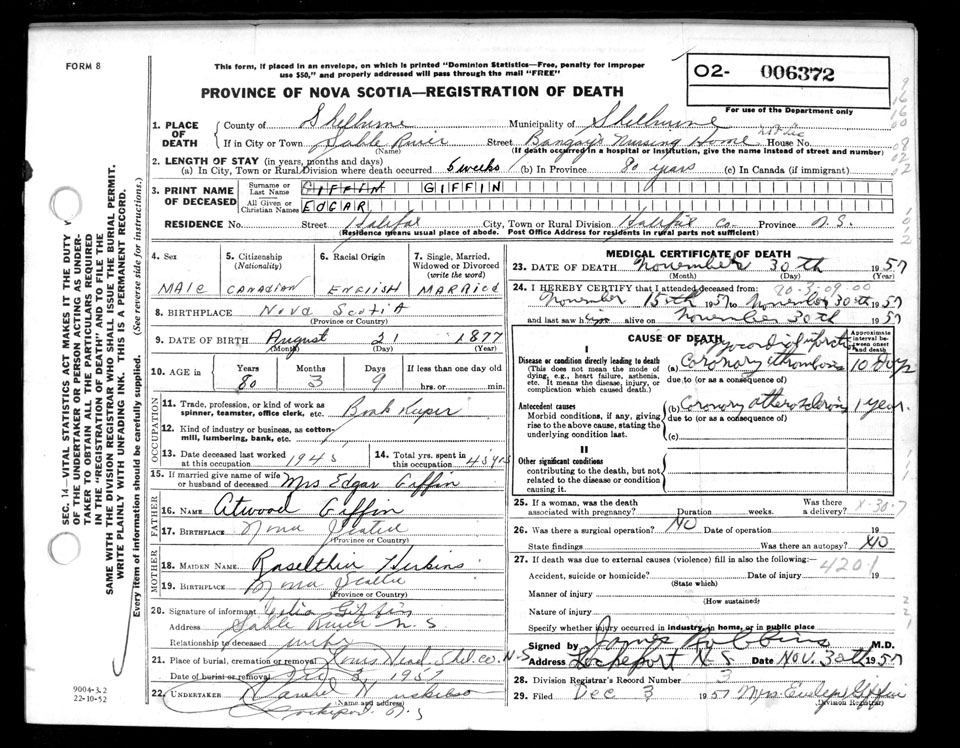 FORM 8
This form, if placed in an envelope, on which is printed "Dominion Statistics—Free, penalty for improper
use $50," and properly addressed will pass through the mail "FREE"
PROVINCE OF NOVA SCOTIA—REGISTRATION OF DEATH
02- 006372
For use of the Department only
1. PLACE OF DEATH
County of Shelburne Municipality of Shelburne
If in City or Town Sable River Street Nursing Home House No.
(Name) (If death occurred in a hospital or institution, give the name instead of street and number)
2. LENGTH OF STAY (in years, months and days)
(a) In City, Town or Rural Division where death occurred 5 weeks (b) In Province 80 years (c) In Canada (if immigrant)
3. PRINT NAME OF DECEASED
Surname or Last Name GIFFIN GIFFIN
All Given or Christian Names EDGAR
RESIDENCE No. Street Halifax City, Town or Rural Division Halifax Co. Province N.S.
(Residence means usual place of abode. Post Office Address for residents in rural parts not sufficient)
4. Sex
MALE
5. Citizenship
(Nationality)
CANADIAN
6. Racial Origin
ENGLISH
7. Single, Married,
Widowed or Divorced
(write the word)
MARRIED
8. BIRTHPLACE NOVA SCOTIA
(Province or Country)
9. DATE OF BIRTH August 21 1877
(Month) (Day) (Year)
10. AGE in
Years Months Days If less than one day old
80 3 9 hrs. or min.
OCCUPATION
11. Trade, profession, or kind of work as
spinner, teamster, office clerk, etc. Book Keeper
12. Kind of industry or business, as cotton-
mill, lumbering, bank, etc.
13. Date deceased last worked
at this occupation 1945
14. Total yrs. spent in
this occupation 45 yrs
15. If married give name of wife
or husband of deceased Mrs Edgar Giffin
FATHER
16. NAME Atwood Giffin
17. BIRTHPLACE Nova Scotia
(Province or Country)
MOTHER
18. MAIDEN NAME
19. BIRTHPLACE Nova Scotia
(Province or Country)
20. Signature of informant Giffin
Address Sable River N.S
Relationship to deceased wife
21. Place of burial, cremation or removal Louis Head, Shel. Co. N.S
Date of burial or removal Dec 3 1957
22. UNDERTAKER
(Name and address)
N.S
9004-3.2
22-10-52
MEDICAL CERTIFICATE OF DEATH
23. DATE OF DEATH November 30th 1957
(Month) (Day) (Year)
24. I HEREBY CERTIFY that I attended deceased from
20-3-09-00
November 15th 1957 to November 30th 1957
and last saw him alive on November 30th 1957
CAUSE OF DEATH
Approximate interval between onset and death
I
Disease or condition directly leading to death
(This does not mean the mode of
dying, e.g., heart failure, asthenia,
etc. It means the disease, injury, or
complication which caused death.)
(a) Coronary thrombosis 10 days
due to (or as a consequence of)
Antecedent causes
Morbid conditions, if any, giving
rise to the above cause, stating the
underlying condition last.
(b) Coronary atherosclerosis 1 year.
due to (or as a consequence of)
(c)
II
Other significant conditions
contributing to the death, but not
related to the disease or condition
causing it.
25. If a woman, was the death
associated with pregnancy? Duration weeks. Was there
a delivery? X-30-7
26. Was there a surgical operation? NO Date of operation 19
State findings Was there an autopsy? NO
27. If death was due to external causes (violence) fill in also the following:—
420.1
Accident, suicide or homicide? Date of injury 19
(State which)
Manner of injury
(How sustained)
Nature of injury
Specify whether injury occurred in industry, in home, or in public place
Signed by James Robbins M.D.
Address Lockeport N S Date NOV. 30th 1957
28. Division Registrar's Record Number 3
29. Filed Dec 3 1957 Mrs. Evelyn Giffin
(Division Registrar)
SEC. 14—VITAL STATISTICS ACT MAKES IT THE DUTY
OF THE UNDERTAKER OR PERSON ACTING AS UNDER-
TAKER TO OBTAIN ALL THE PARTICULARS REQUIRED
IN THE "REGISTRATION OF DEATH" AND TO FILE THE
SAME WITH THE DIVISION REGISTRAR WHO SHALL ISSUE THE BURIAL PERMIT.
WRITE PLAINLY WITH UNFADING INK. THIS IS A PERMANENT RECORD.
Every item of information should be carefully supplied. (See reverse side for instructions.)